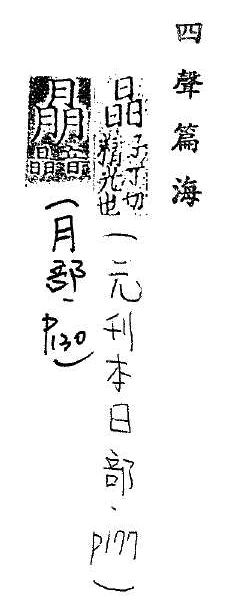 四聲篇海
晶 子丁切精光也(元刊本日部.p177)
音晶(月部.p130)